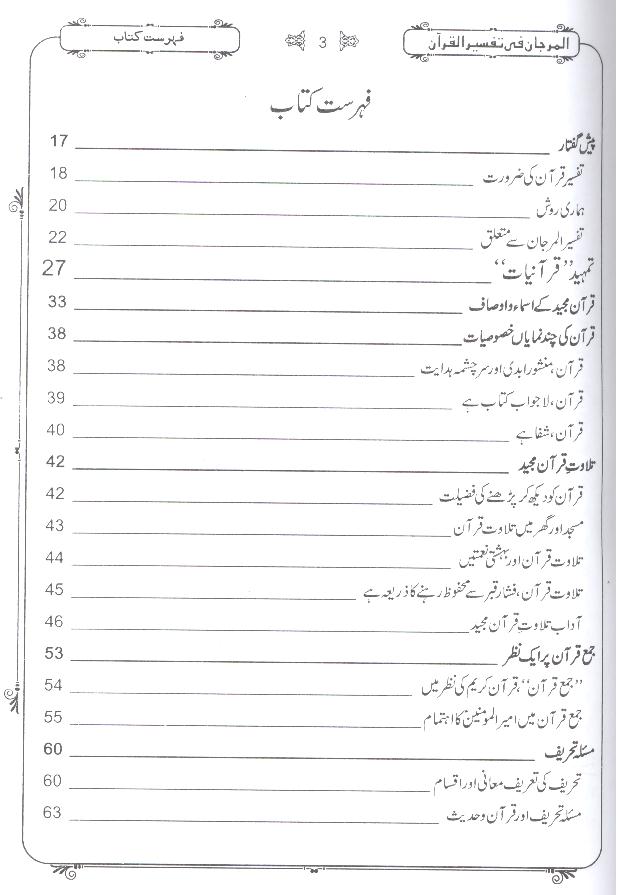 المرجان فی تفسیر القرآن 3 فہرست کتاب
فہرست کتاب
پیش گفتار 17
تفسیر قرآن کی ضرورت 18
ہماری روش 20
تفسیر المرجان سے متعلق 22
تمہید ”قرآنیات“ 27
قرآن مجید کے اسماء و اوصاف 33
قرآن کی چند نمایاں خصوصیات 38
قرآن، منشور ابدی اور سرچشمہ ہدایت 38
قرآن، لاجواب کتاب ہے 39
قرآن، شفا ہے 40
تلاوتِ قرآن مجید 42
قرآن کو دیکھ کر پڑھنے کی فضیلت 42
مسجد اور گھر میں تلاوت قرآن 43
تلاوت قرآن اور بہشتی نعمتیں 44
تلاوت قرآن، فشار قبر سے محفوظ رہنے کا ذریعہ ہے 45
آداب تلاوتِ قرآن مجید 46
جمع قرآن پر ایک نظر 53
”جمع قرآن“، قرآن کریم کی نظر میں 54
جمع قرآن میں امیر المومنین کا اہتمام 55
مسئلہ تحریف 60
تحریف کی تعریف معانی اور اقسام 60
مسئلہ تحریف اور قرآن و حدیث 63